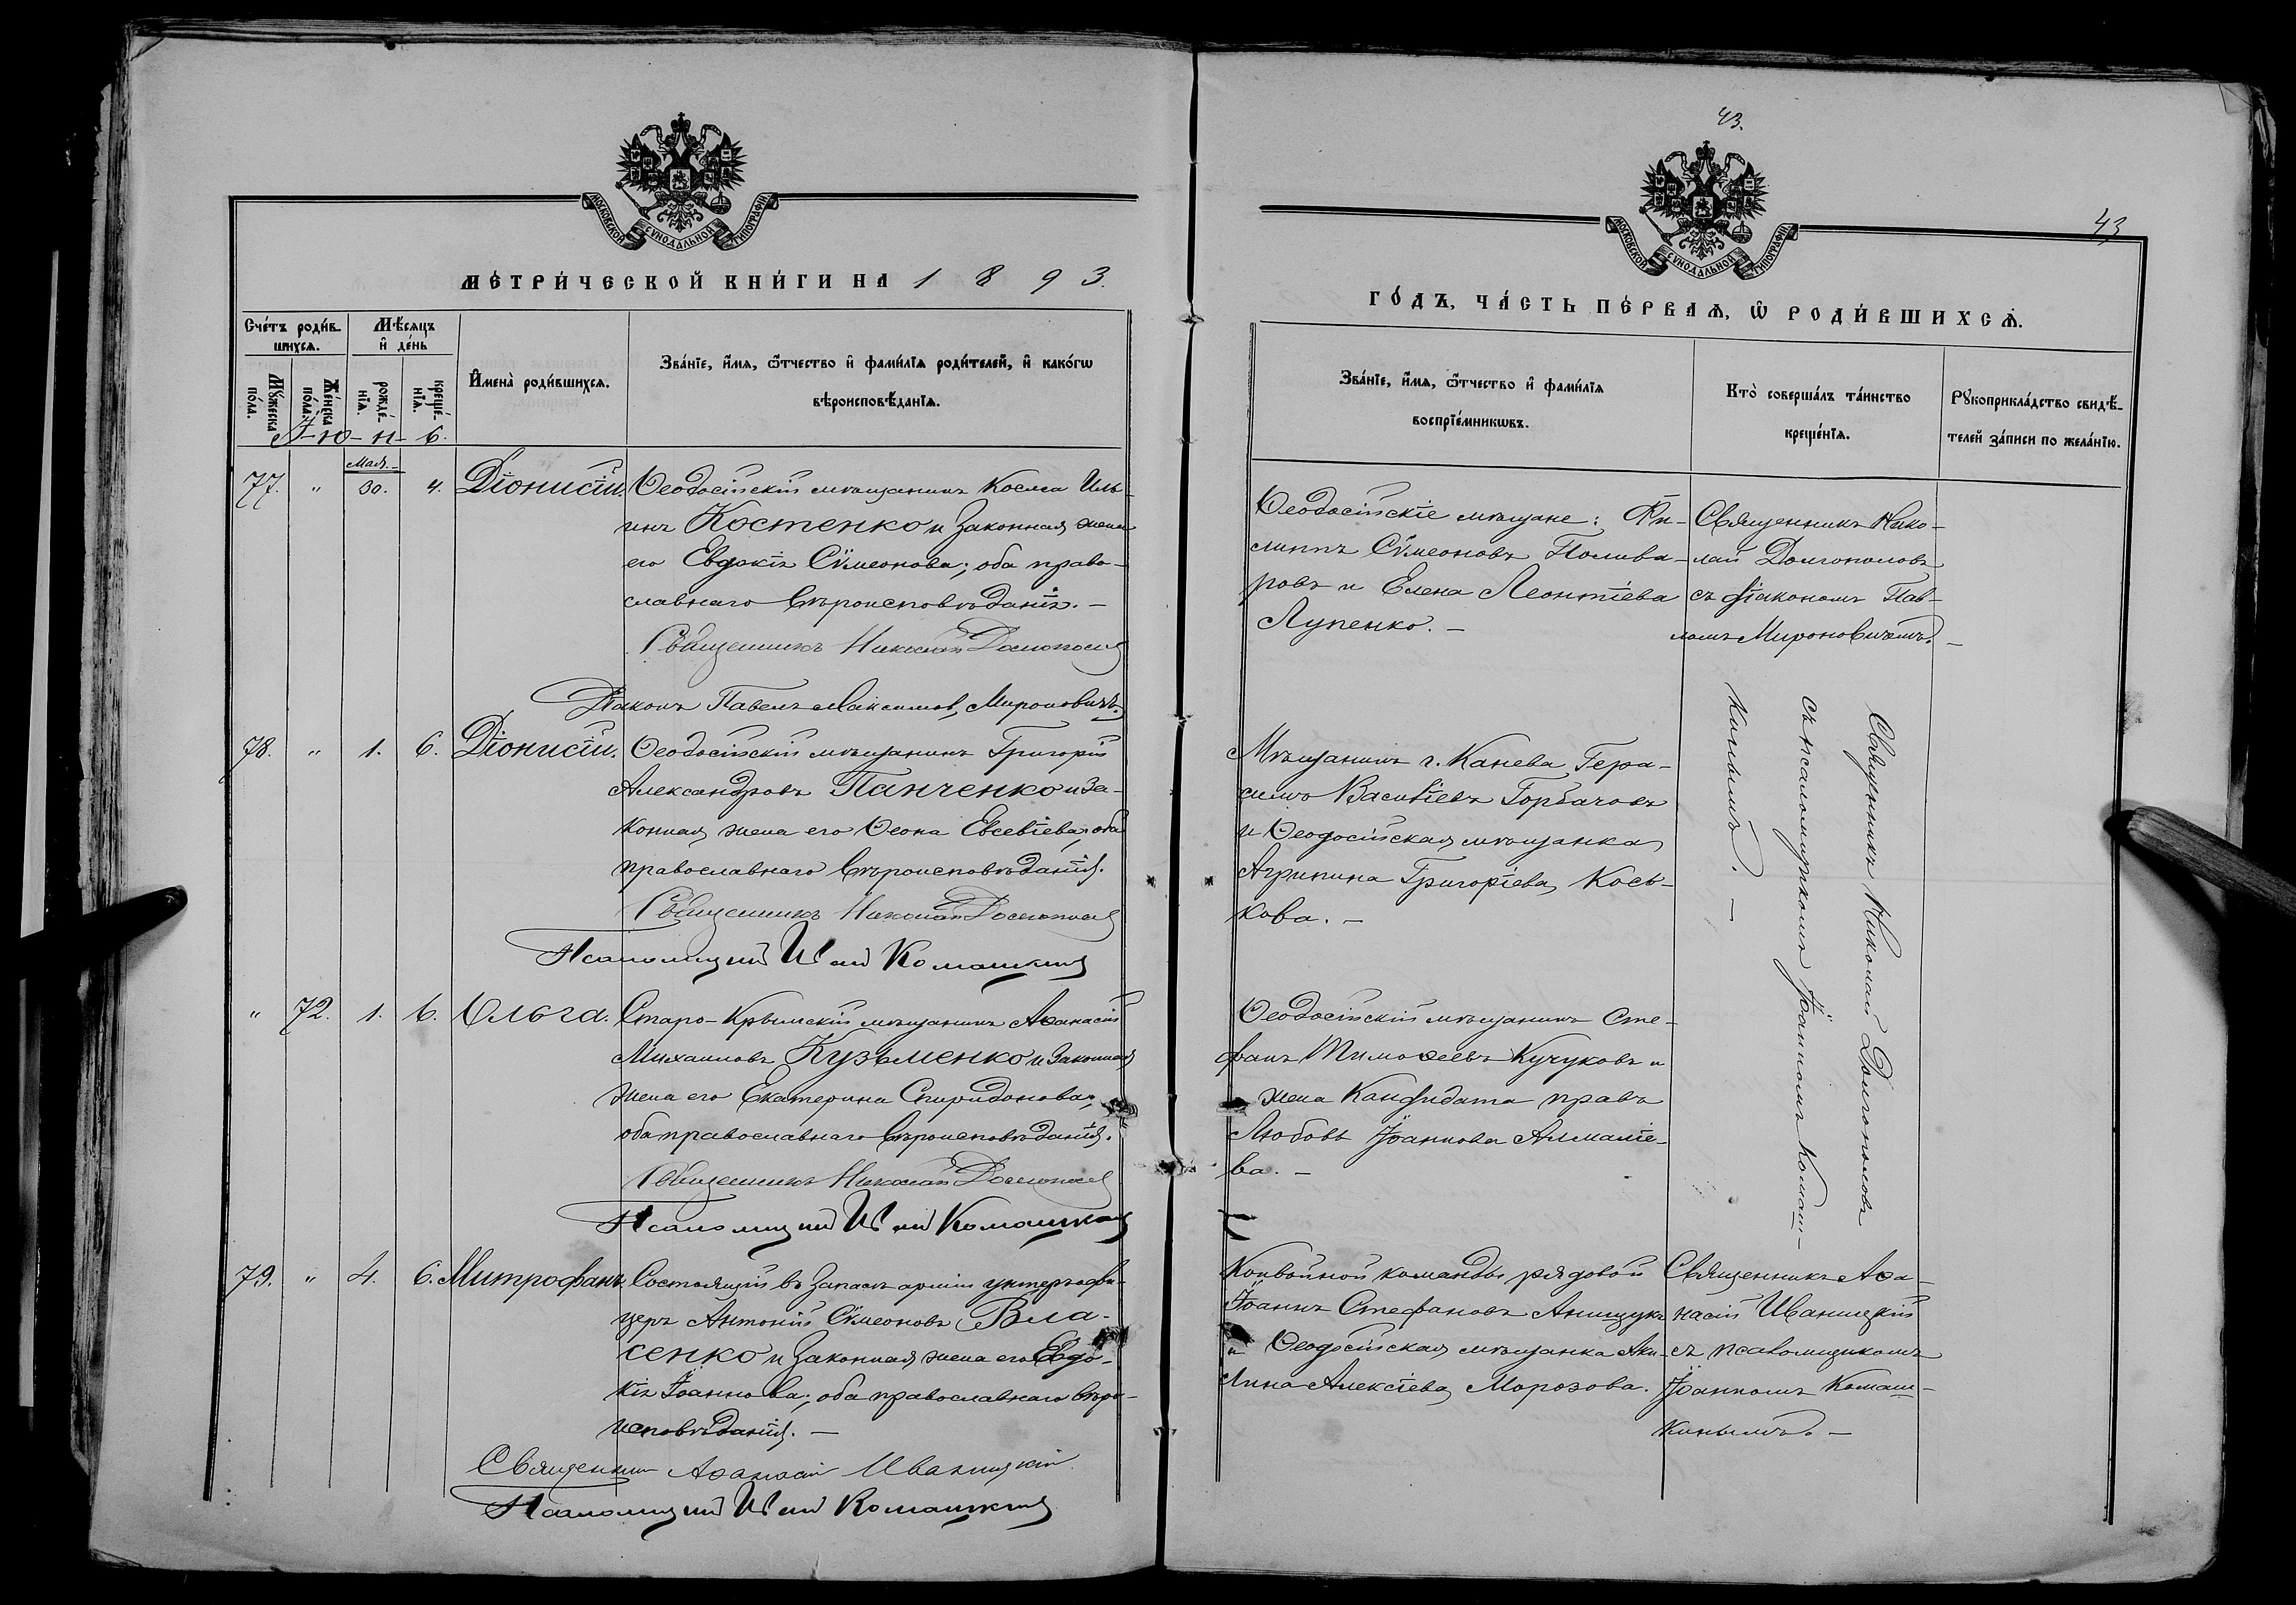 43.
43
МОСКОВСКОЙ СѴНОДАЛЬНОЙ ТИПОГРАФІИ
МЕТРИ́ЧЕСКОЙ КНИ́ГИ НА 1893.
Сче́тъ роди́в-
шихсѧ.
Мѣ́сѧцъ
и҆ де́нь
Мꙋ́жеска
по́ла.
Же́нска
по́ла.
рожде́-
нїѧ.
креще́-
нїѧ.
И҆мена̀ роди́вшихсѧ.
Зва́нїе, и҆́мѧ, ѻ҆́тчество и҆ фами́лїѧ роди́телей, и҆ како́гѡ
вѣроисповѣ́данїѧ.
І-ю-н-ь.
Маія.
77. " 30. 4. Діонисій. Ѳеодосійскій мѣщанинъ Косма Иль-
инъ Костенко и законная жена
его Евдокія Сѵмеонова; оба право-
славнаго вѣроисповѣданія. —
Священникъ Николай Долгополов
Діаконъ Павелъ Максимов, Мироновичъ.
78. " 1. 6. Діонисій. Ѳеодосійскій мѣщанинъ Григорій
Александровъ Панченко и за-
конная жена его Ѳеона Евсевіева; оба
православнаго вѣроисповѣданія.
Священникъ Николай Долгополов
Псаломщик Іоан Комашкин
" 72. 1. 6. Ольга. Старо-Крымскій мѣщанинъ Аѳанасій
Михаиловъ Кузьменко и законная
жена его Екатерина Спиридонова;
оба православнаго вѣроисповѣданія.
Священникъ Николай Долгополов
Псаломщик Іоан Комашкин
79. " 4. 6. Митрофанъ. Состоящій въ запасѣ арміи унтеръ-офи-
церъ Антоній Сѵмеоновъ Вла-
сенко и законная жена его Евдо-
кія Іоаннова; оба православнаго вѣро-
исповѣданія. —
Священник Аѳанасій Иваницкій
Псаломщик Іоан Комашкин
МОСКОВСКОЙ СѴНОДАЛЬНОЙ ТИПОГРАФІИ
ГО́ДЪ, ЧА́СТЬ ПЕ́РВАѦ, Ѡ҆ РОДИ́ВШИХСѦ.
Зва́нїе, и҆́мѧ, ѻ҆́тчество и҆ фами́лїѧ
воспрїе́мникѡвъ.
Кто̀ соверша́лъ та́инство
креще́нїѧ.
Рꙋкоприкла́дство свидѣ́-
телей за́писи по жела́нїю.
Ѳеодосійскіе мѣщане: Фи-
липпъ Сѵмеоновъ Полива-
ровъ и Елена Леонтіева
Лупенко. —
Священникъ Нико-
лай Долгополовъ
съ діакономъ Пав-
ломъ Мироновичемъ. —
Мѣщанинъ г. Канева Гера-
симъ Васильевъ Горбачовъ
и Ѳеодосійская мѣщанка
Агрипина Григоріева Кось-
кова. —
Священникъ Николай Долгополовъ
съ псаломщикомъ Іоанномъ Комаш-
кинымъ. —
Ѳеодосійскій мѣщанинъ Сте-
фанъ Тимоѳеевъ Кучуковъ и
жена Кандидата правъ
Любовь Іоаннова Алмаліе-
ва. —
Конвойной команды рядовой
Іоаннъ Стефановъ Анищукъ
и Ѳеодосійская мѣщанка Аки-
лина Алексіева Морозова.
Священникъ Аѳа-
насій Иваницкій
съ псаломщикомъ
Іоанномъ Комаш-
кинымъ. —